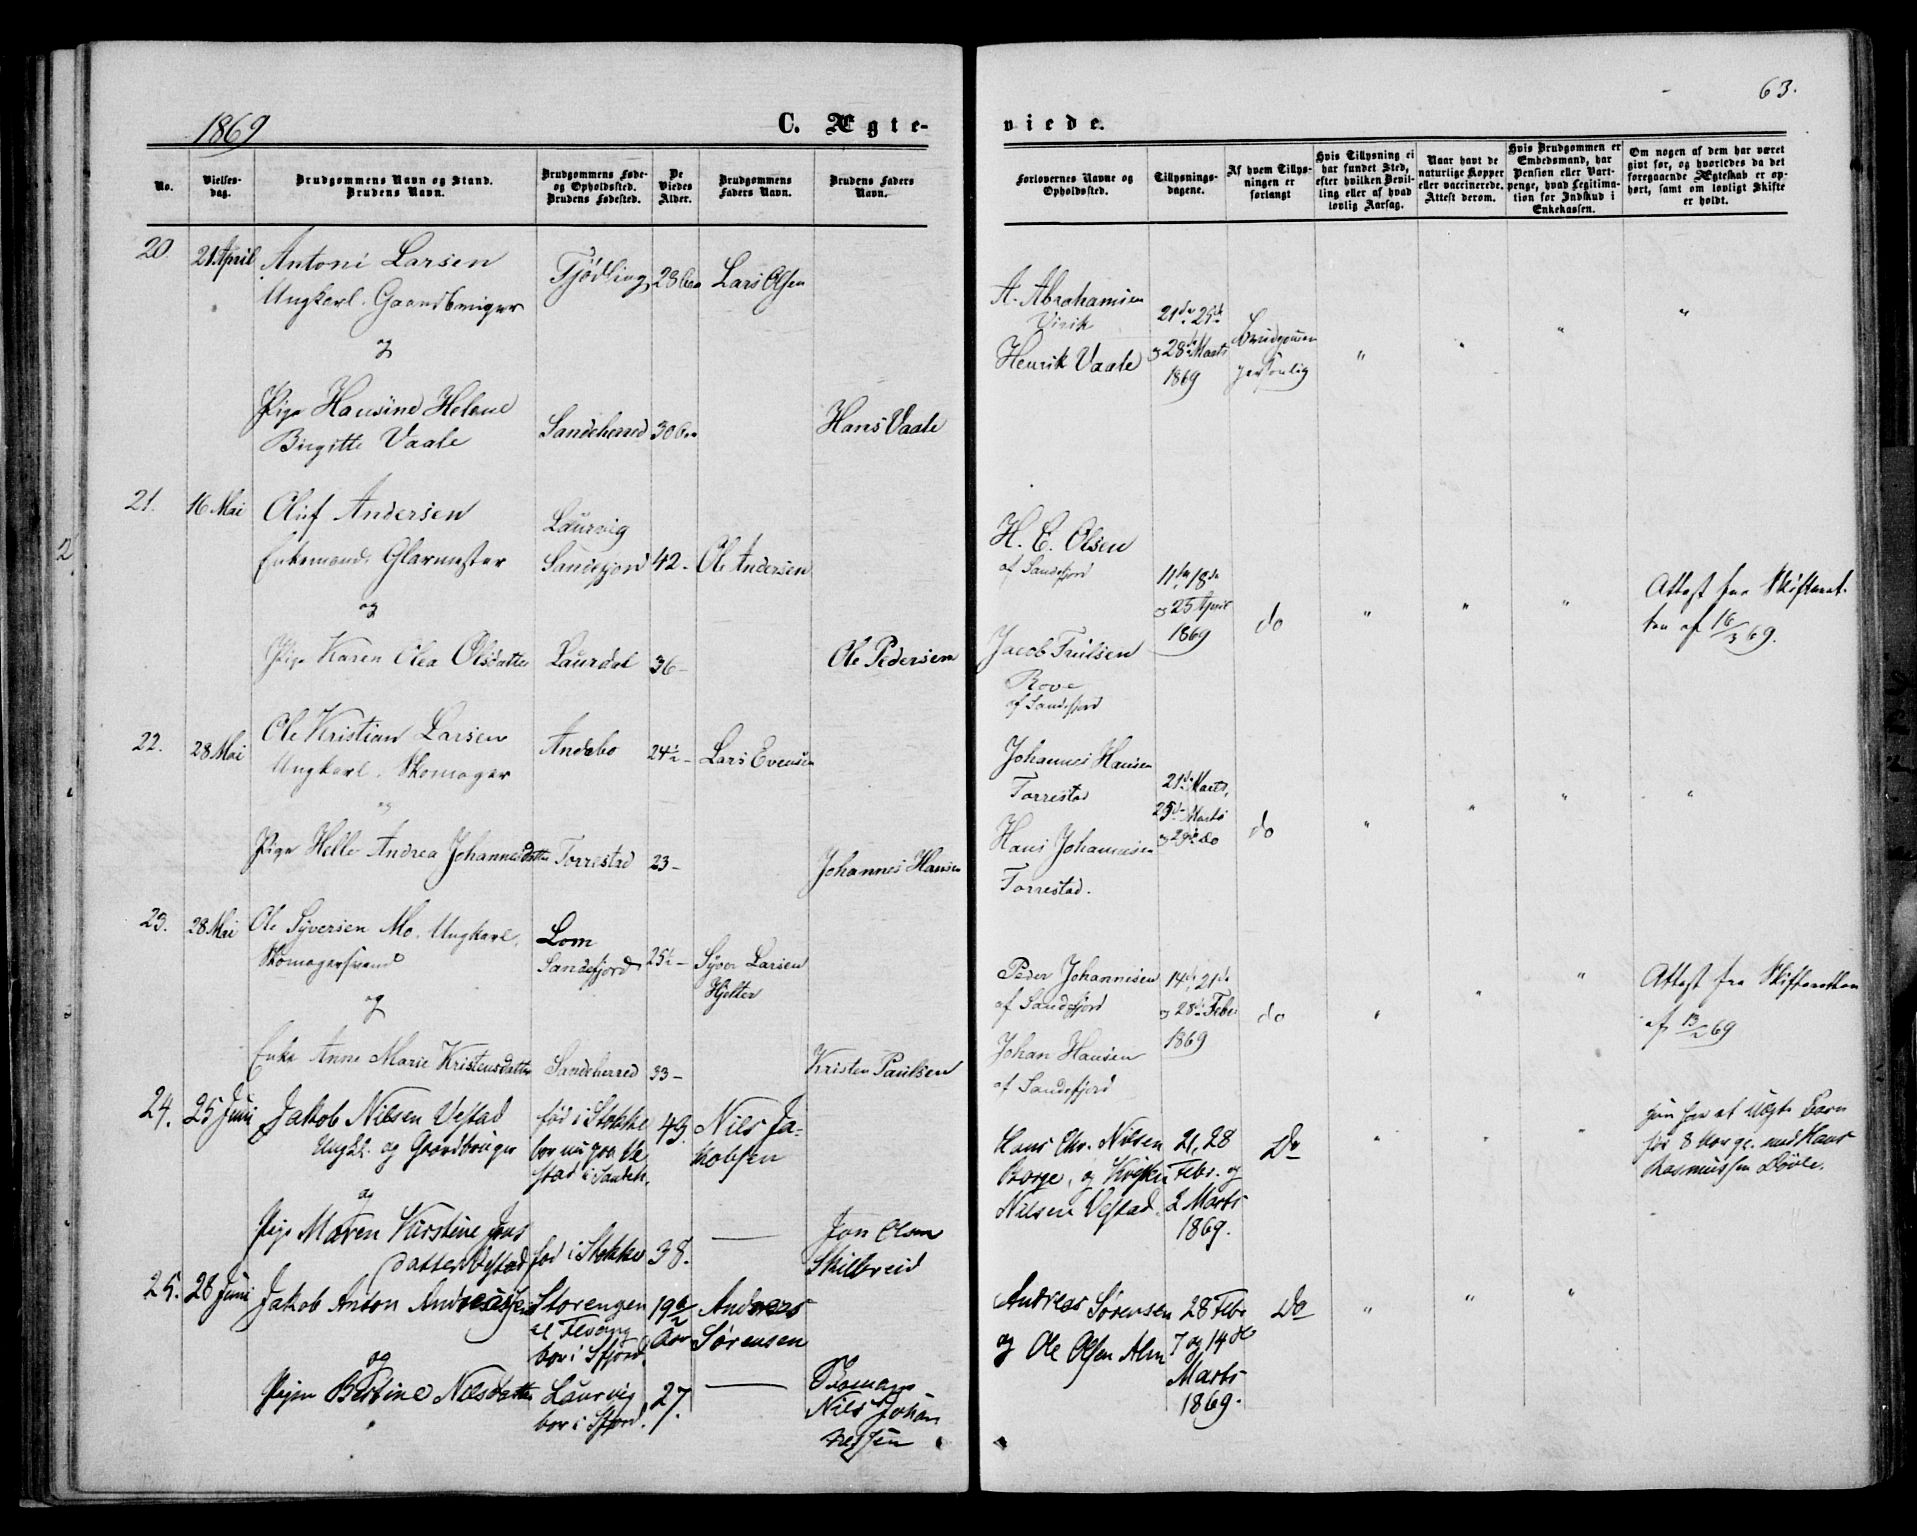 63.
1869
C. Ægte-
viede.
No.
Vielses-
dag.
Brudgommens Navn og Stand.
Brudens Navn.
Brudgommens Føde-
og Opholdssted.
Brudens Fødested.
De
Viedes
Alder.
Brudgommens
Faders Navn.
Brudens Faders
Navn.
Forlovernes Navne og
Opholdssted.
Tillysnings-
dagene.
Af hvem Tillys-
ningen er
forlangt
Hvis Tillysning ei
har fundet Sted,
efter hvilken Bevil-
ling eller af hvad
lovlig Aarsag.
Naar havt de
naturlige Kopper
eller vaccinerede.
Attest derom.
Hvis Brudgommen er
Embedsmand, har
Pension eller Vart-
penge, hvad Legitima-
tion for Indskud i
Enkekassen.
Om nogen af dem har været
gift før, og hvorledes da det
foregaaende Ægteskab er op-
hørt, samt om lovligt Skifte
er holdt.
20. 21 April Antoni Larsen
Ungkarl. Gaardbruger
Tjødling 28 Lars Olsen
og
Pige Hansine Helene
Birgitte Vaale
Sandeherred 30 Hans Vaale
A. Abrahamsen
Virik
Henrik Vaale
21de 25de
og 28de Marts
1869
Brudgommen
personlig
21. 16 Mai Oluf Andersen
Enkemand. Glarmester
Laurvig
Sandefjord 42 - Ole Andersen
og
Pige Karen Olea Olsdatter Laurdal 36 - Ole Pedersen
H. E. Olsen
af Sandefjord
Jacob Trulsen
Rove
af Sandefjord
11te 18de
og 25 April
1869
do
Attest fra Skifteret-
ten af 16/3 69.
22. 28 Mai Ole Kristian Larsen
Ungkarl. Skomager
Andebo 24½ - Lars Evensen
og
Pige Helle Andrea Johannesdatter Torrestad 23 - Johannes Hansen
Johannes Hansen
Torrestad
Hans Johannesen
Torrestad.
21de Marts,
25de Marts
og 29de do
do
23. 28 Mai Ole Syversen Mo. Ungkarl,
Skomagersvend
Lom
Sandefjord 25½ - Syver Larsen
Hjelter
og
Enke Anne Marie Kristensdatter Sandeherred 33 - Kristen Paulsen
Peder Johannesen
af Sandefjord
Johan Hansen
af Sandefjord
14de, 21de
og 28de Febr
1869
do
Attest fra Skifteretten
af 13/2 69
24. 25 Juni Jakob Nilsen Vestad
Ungk. og Gaardbruger
født i Stokke
bor nu paa Ve
stad i Sandeh.
43. Nils Ja-
kobsen
og
Pige Maren Kirstine Jons
datter Vestad
født i Stokke 38. — Jon Olsen
Skillbreid
Hans Chr. Nilsen
Borge, og
Nilsen Vestad.
21, 28
Febr. og
2 Marts
1869.
Do
hun har et uægte Barn
for 8 Aar med Hans
Rasmussen
25. 28 Juni Jakob Anton Andreassen
Storengen
bor i Sfjord.
19½
Aar
Andreas
Sørensen
og
Pigen Bertine Nilsdatter Laurvig
bor i Sfjord.
27. —
Nils Johan
nessen
Andreas Sørensen
og Ole Olsen Alm
28 Febr
7 og 14de
Marts
1869.
Do